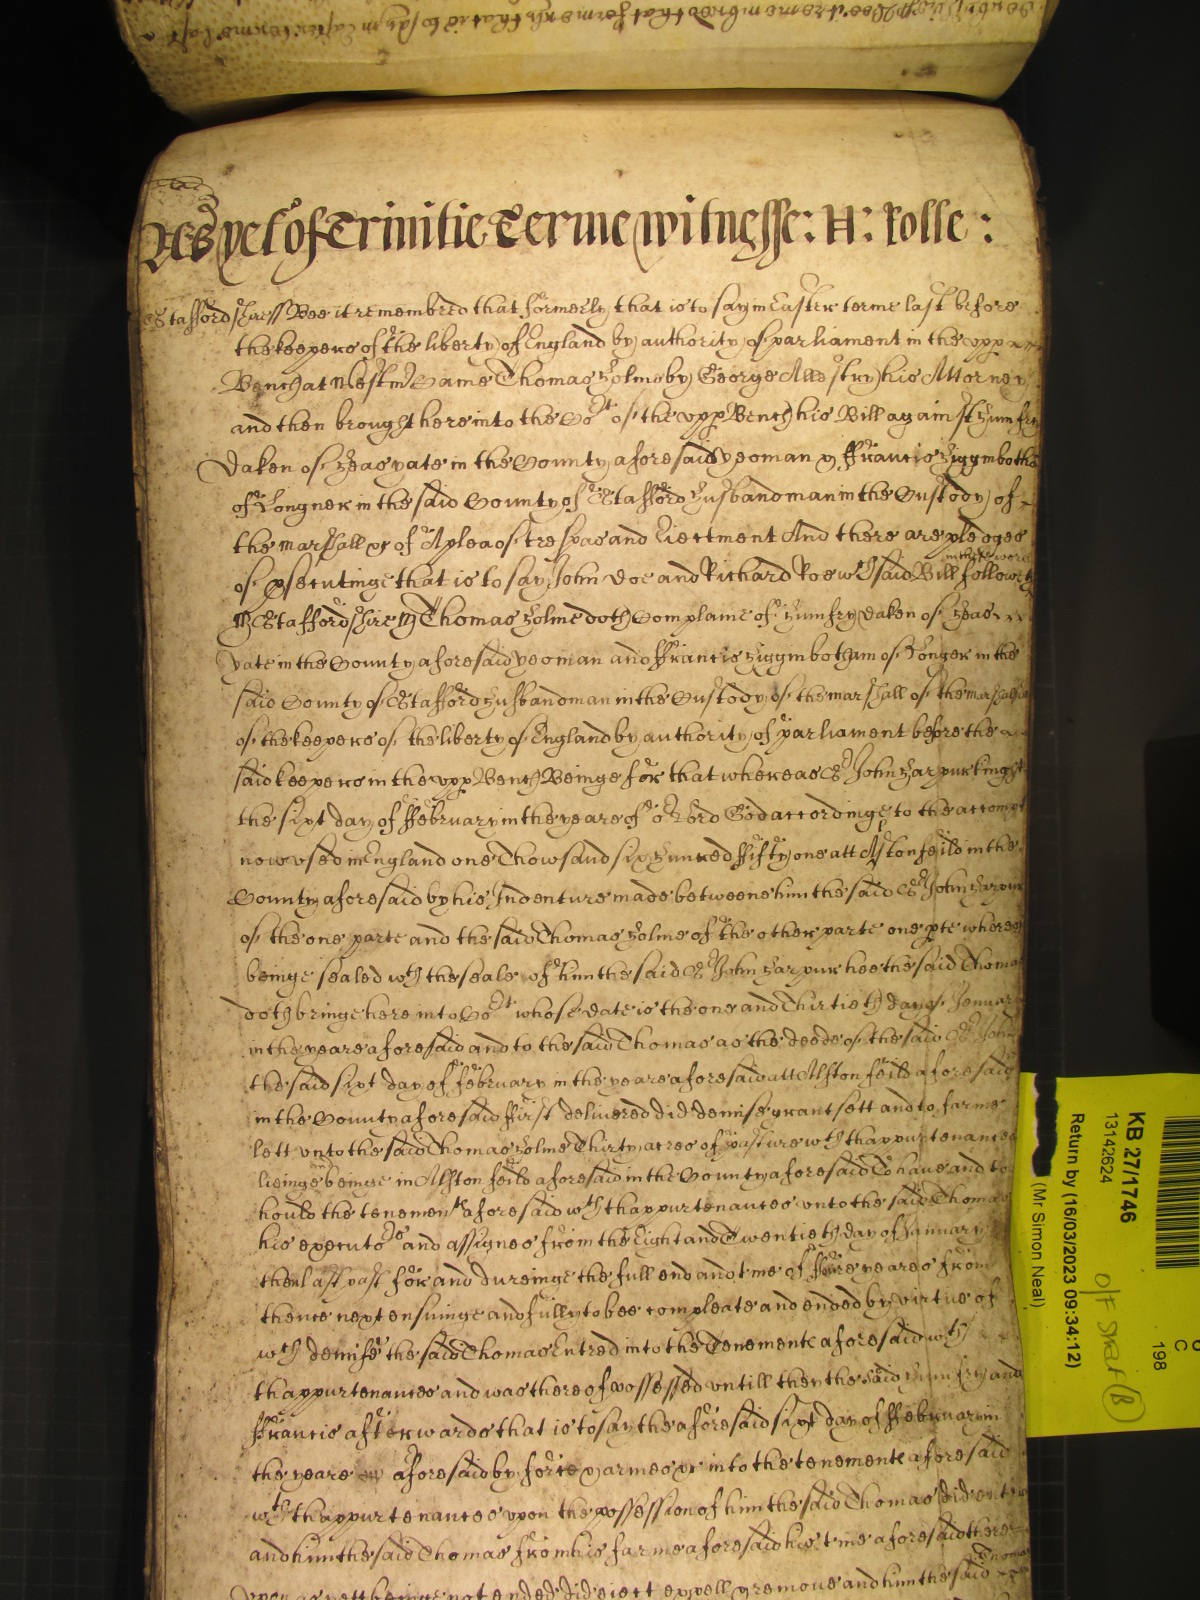 As yet of Trinitie Terme witnesse: H: Rolle:
Staffordshire ss Bee it remembred that formerly that is to say in Easter terme last before
the keepers of the liberty of England by authority of parliament in the upp
Bench at Westmr Came Thomas Holme by George Allestry his Attorney
and then brought here into the Cort of the upp Bench his Bill against Humfry
Daken of Heasyate in the County aforesaid yeoman & Francis Higginbotha
of Longner in the said County of Stafford husbandman in the Custody of
the marshall &c of A plea of trespas and Eiectment And there are pledges
of psecutinge that is to say John Doe and Richard Roe wch said Bill followeth
in these words
ss Staffordshire ss Thomas Holme doth Complaine of Humfry Daken of Heas
yate in the County aforesaid yeoman and Francis Higginbotham of Longer in the
said County of Stafford husbandman in the Custody of the marshall of the marshalsea
of the keepers of the liberty of England by authority of parliament before the
said keepers in the upp Bench Beinge for that whereas Sr John Harpur knight
the sixt day of February in the yeare of or Lord God accordinge to the accompt
now used in England one Thowsand six hunred Fifty one att Alstonfeild in the
County aforesaid by his Indenture made betweene him the said Sr John Harpur
of the one parte and the said Thomas Holme of the other parte one pte whereof
beinge sealed wth the seale of him the said Sr John Harpur hee the said Thomas
doth bringe here into Cort whose date is the one and Thirtieth day of January
in the yeare aforesaid and to the said Thomas as the deede of the said Sr John
the said sixt day of February in the yeare aforesaid att Alstonfeild aforesaid
in the County aforesaid First delivered did demise grant sett and to farme
lett unto the said Thomas Holme Thirty acres of pasture wth thappurtenances
lieinge & beinge in Alstonfeild aforesaid in the County aforesaid To have and to
hould the tenemente aforesaid wth thappurtenances unto the said Thomas
his executors and assignes from the Eight and Twentieth day of January
then last past for and dureinge the full end and tme of five yeares from
thence next ensuinge and fully to bee compleate and ended by virtue of
wch demise the said Thomas Entred into the Tenemente aforesaid wth
thappurtenances and was thereof possessed untill they the said Humfry and
Francis afterwards that is to say the aforesaid sixt day of February in
the yeare aforesaid by force & armes &c into the tenemente aforesaid
wth thappurtenances upon the possession of him the said Thomas did enter
and him the said Thomas from his farme aforesaid his tme aforesaid there
upon as yett beinge not ended did eiect expell & remove and him the said Thomas
KB 27/1746
13142624
Return by (16/03/2023 09:34:12)
(Mr Simon Neal)
198
C